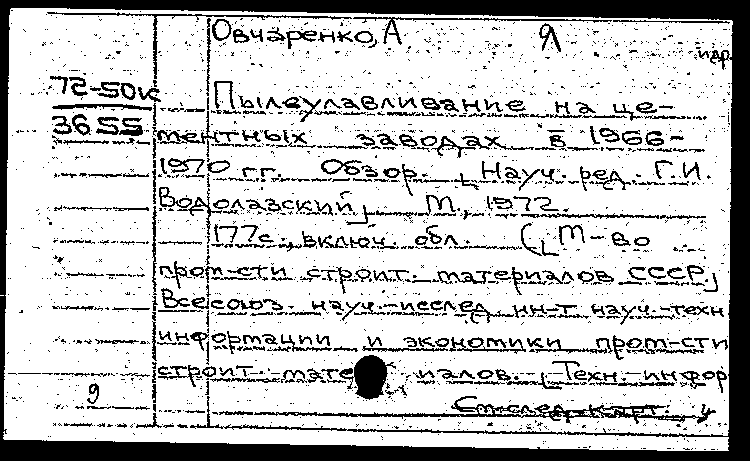 Овчаренко, А Я
72-50к
3655
Пылеулавливание на це-
ментных заводах в 1966-
1970 гг. Обзор. [Науч. ред. Г.И.
Водолазский]. М., 1972.
177с., включ. обл. ([М-во
пром-сти строит. материалов СССР.]
Всесоюз. науч.-исслед. ин-т науч.-техн
информации и экономики пром-сти
строит. материалов. [Техн. инфор
9
См. след. карт.